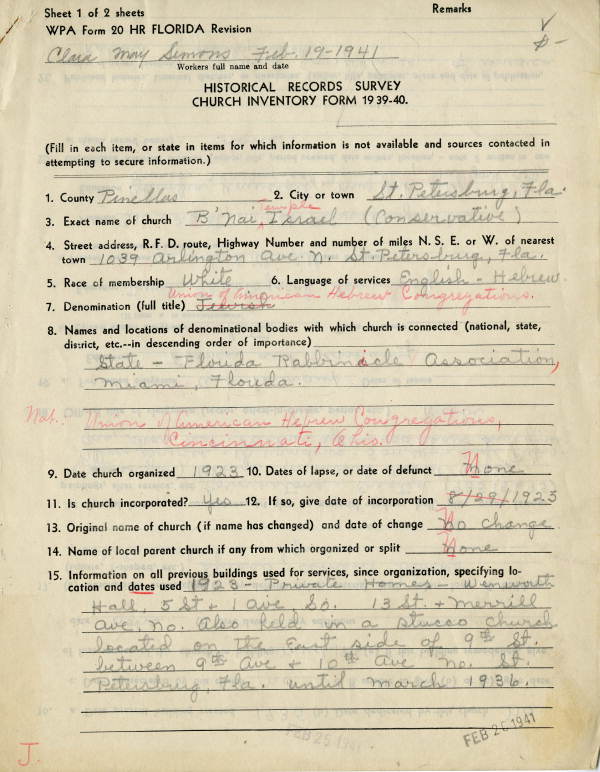 Sheet 1 of 2 sheets
Remarks
WPA Form 20 HR FLORIDA Revision
Clara May Simons Feb. 19-1941
Workers full name and date
HISTORICAL RECORDS SURVEY
CHURCH INVENTORY FORM 1939-40.
(Fill in each item, or state in items for which information is not available and sources contacted in
attempting to secure information.)
1. County Pinellas 2. City or town St. Petersburg, Fla.
Temple
3. Exact name of church B'Nai, Israel (Conservative)
4. Street address, R. F. D. route, Highway Number and number of miles N. S. E. or W. of nearest
town 1039 Arlington Ave. N. St. Petersburg, Fla.
5. Race of membership White 6. Language of services English - Hebrew
Union of American Hebrew Congregations.
7. Denomination (full title) Jewish
8. Names and locations of denominational bodies with which church is connected (national, state,
district, etc.--in descending order of importance)
State - Florida Rabbinicle Association,
Miami, Florida.
Nat. Union of American Hebrew Congregations,
Cincinnati, Ohio.
9. Date church organized 1923 10. Dates of lapse, or date of defunct None
11. Is church incorporated? yes 12. If so, give date of incorporation 8/29/1923
13. Original name of church (if name has changed) and date of change No change
14. Name of local parent church if any from which organized or split None
15. Information on all previous buildings used for services, since organization, specifying lo-
cation and dates used 1923 - Private Homes - Wenworth
Hall, 5 St + 1 ave, So. 13 St. + Merrill
Ave, No. Also held in a stucco church
located on the East side of 9th St.
between 9th Ave + 10th Ave No. St.
Petersburg, Fla. until March 1936.
FEB 25 1941
FEB 26 1941
J.